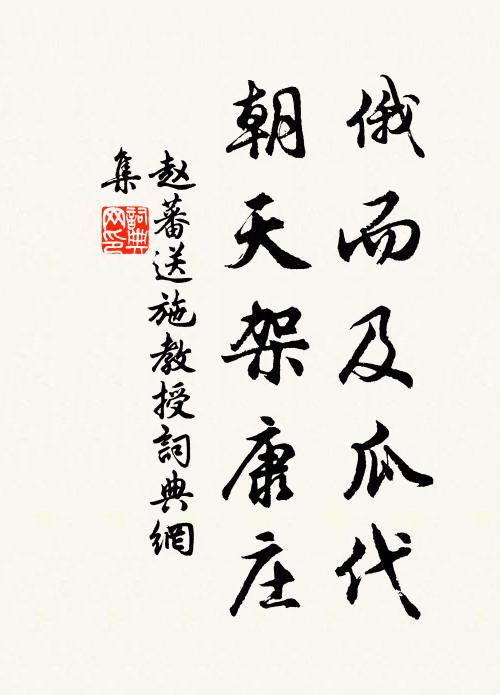 俄而及瓜代
朝天架康庄
赵蕃送施教授詞典網
集
詞典
网印